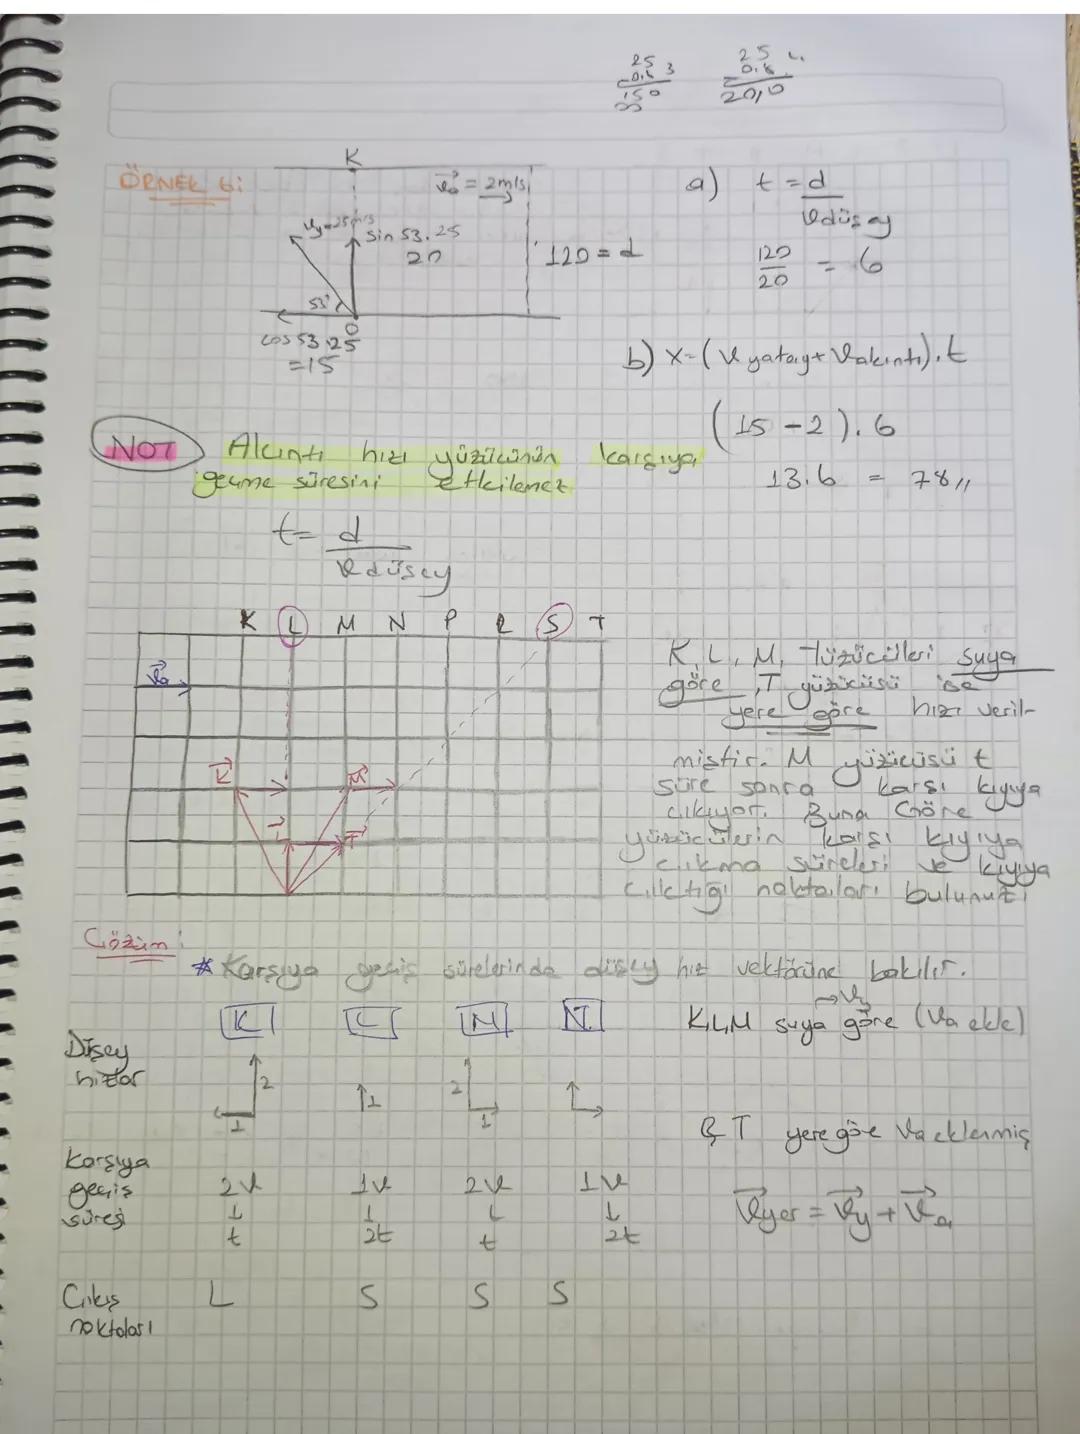 25
0,6 3
150
25
0,8
20,0
ÖRNEK 6:
K
Va = 2m/s
Vy=25m/s
sin 53.25
20
120 = d
53°
O
cos 53.25
=15
a) t = d
Vdüşey
120
20
= 6
b) X=(Vyatay+Vakıntı).t
(15-2).6
13.6 = 78,,
NOT
Akıntı hızı yüzücünün karşıya
geçme süresini etkilemez
t= d
Vdüşey
K L M N P R S T
Va
K
M
L
T
K, L, M, Yüzücüleri suya
göre, T yüzücüsü ise
yere göre hızı veril-
miştir. M yüzücüsü t
süre sonra karşı kıyıya
çıkıyor. Buna Göre
yüzücülerin karşı kıyıya
çıkma süreleri ve kıyıya
çıktığı noktaları bulunuz
Çözüm:
* Karşıya geçiş sürelerinde düşey hız vektörüne bakılır.
K L M N
→Vy
K,L,M suya göre (Va ekle)
Düşey
hızlar
2
1
1
2
1
T yere göre Va eklenmiş
Karşıya
geçiş
süresi
2V 1V 2V 1V
t 2t t 2t
Vyer = Vy + Va
Çıkış
noktaları
L S S S